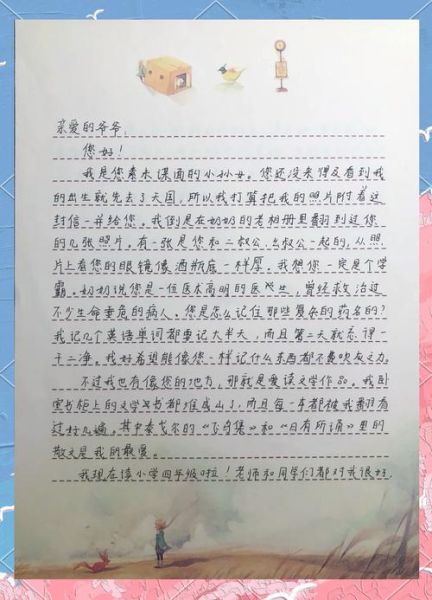 亲爱的爷爷,
您好!
我是您素未谋面的小孙女。您还没来得及看到我
的出生就先去了天国,所以我打算把我的照片附着这
封信一并给您。我倒是在奶奶的老相册里翻到过您
的几张照片。有一张是您和二叔公、幺叔公一起的,从照
片上看您的眼镜像酒瓶底一样厚。我想您一定是个学
霸。奶奶说您是一位医术高明的医生,曾经救治过
不少生命垂危的病人。您是怎么记住那些复杂的药名的?
我记几个英语单词都要记大半天,而且第二天就忘得一
干二净。我好希望能像您一样记什么东西都不费吹灰之力。
不过我也有像您的地方,那就是爱读文学作品。我卧
室书柜上的文学书都堆成山了,而且每一本都被我翻看
过好几遍。其中泰戈尔的“飞鸟集”和“日有所诵”里的
散文是我的最爱。
我现在读小学四年级啦!老师和同学们都对我很好,